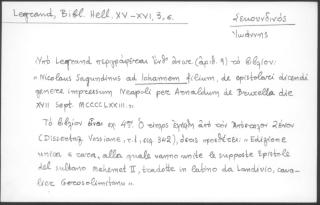 Legrand, Bibl. Hell. XV-XVI, 3, σ.
Σεκουνδινός
Ἰωάννης
Ὑπὸ Legrand περιγράφεται ἔνθ' ἄνωτ. (ἀριθ. 9) τὸ βιβλίον:
"Nicolaus Sagundinus ad Iohannem filium, de epistolari dicendi
genere impressum Neapoli per Arnaldum de Bruxella die
XVII Sept. MCCCCLXXIII."
Τὸ βιβλίον εἶναι εἰς 4ον. Ὁ τίτλος ἐλήφθη ἀπὸ τὸν Ζένον
(Dissertaz. Vossiane, τ. I, σ. 342), ὅστις προσθέτει: "Edizione
unica e rara, alla quale vanno unite le supposte Epistole
del sultano Mehemet II, tradotte in latino da Landivio, cava-
liere Gerosolimitano".